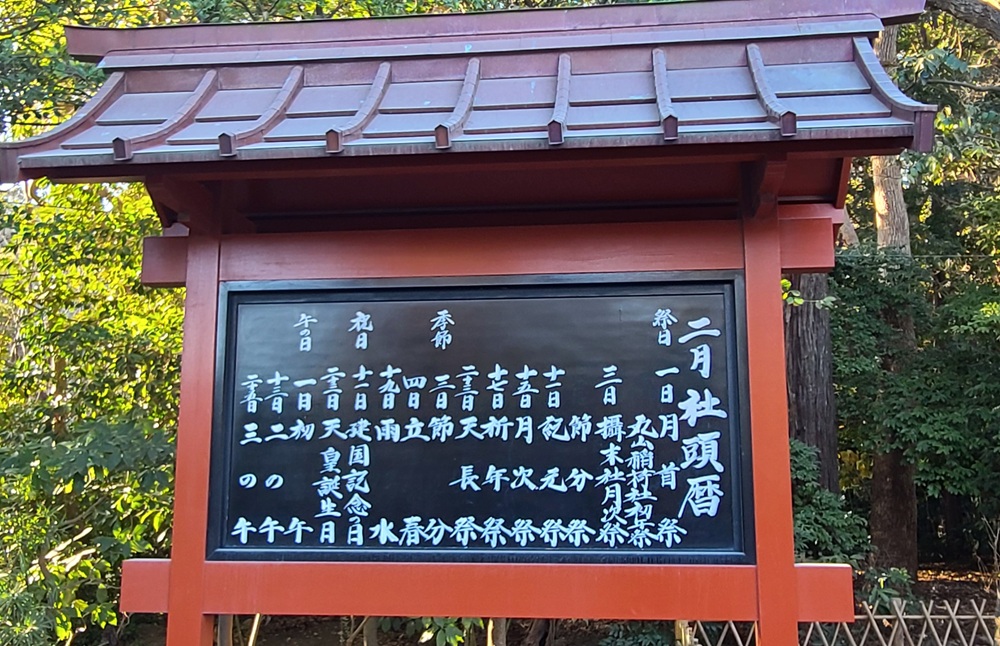 二月 社頭暦
祭日 一日 月首祭
丸山稲荷社初午祭
三日 攝末社月次祭
節分祭
十一日 紀元祭
十五日 月次祭
十七日 祈年祭
二十三日 天長祭
季節 三日 節分
四日 立春
十九日 雨水
祝日 十一日 建国記念の日
二十三日 天皇誕生日
午の日 一日 初午
十三日 二の午
二十五日 三の午